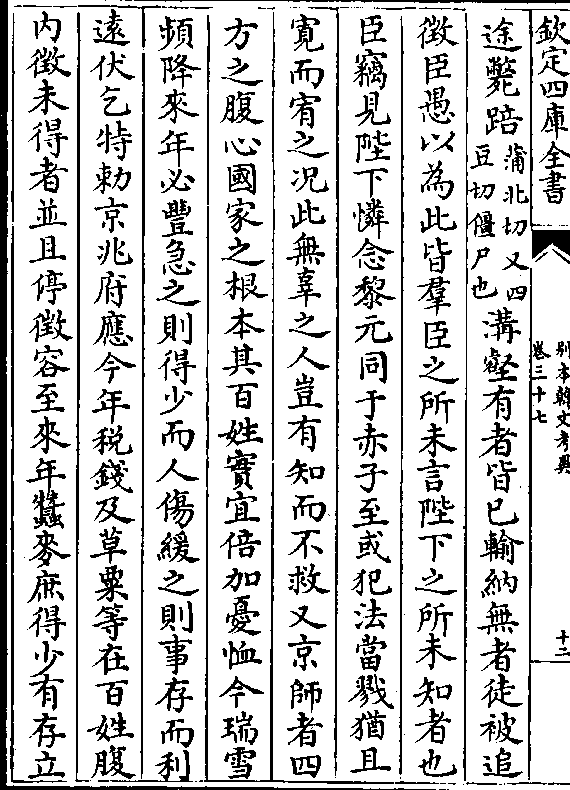 欽定四庫全書
别本韓文考異
卷三十七
十二
途斃踣蒲北切又四豆切僵尸也溝壑有者皆已輸納無者徒被追
徴臣愚以為此皆羣臣之所未言陛下之所未知者也
臣竊見陛下憐念黎元同于赤子至或犯法當戮猶且
寛而宥之况此無辜之人豈有知而不救又京師者四
方之腹心國家之根本其百姓實宜倍加憂恤今瑞雪
頻降來年必豐急之則得少而人傷緩之則事存而利
遠伏乞特勅京兆府應今年税錢及草粟等在百姓腹
内徴未得者並且停徴容至來年蠶麥庶得少有存立